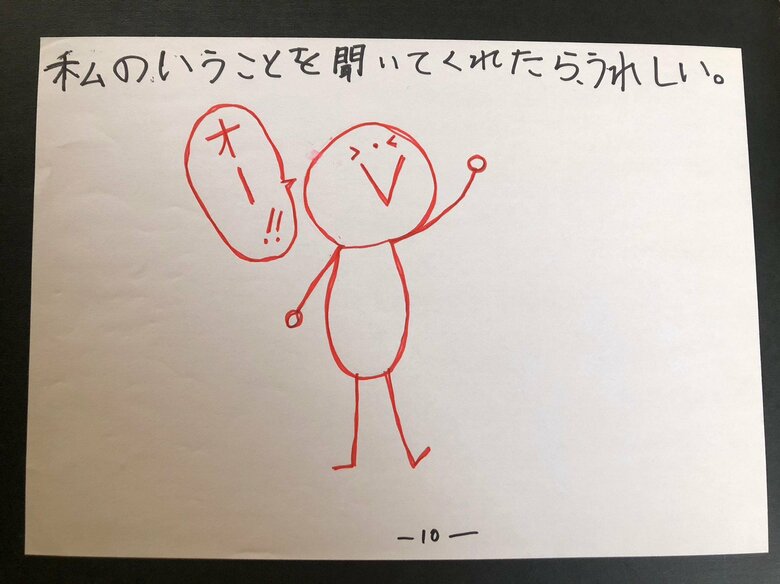 私のいうことを聞いてくれたら、うれしい。
オー!!
-10-